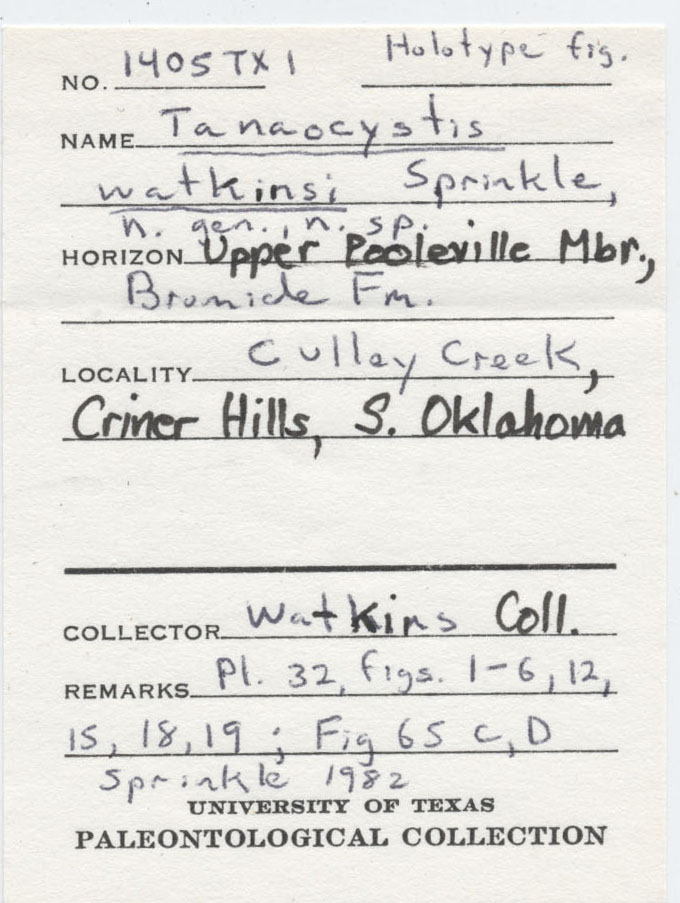 NO. 1405TX1 Holotype fig.
NAME Tanaocystis
watkinsi Sprinkle,
n. gen., n. sp.
HORIZON Upper Pooleville Mbr.,
Bromide Fm.
LOCALITY Culley Creek,
Criner Hills, S. Oklahoma
COLLECTOR Watkins Coll.
REMARKS Pl. 32, figs. 1-6, 12,
15, 18, 19 ; Fig 65 C, D
Sprinkle 1982
UNIVERSITY OF TEXAS
PALEONTOLOGICAL COLLECTION